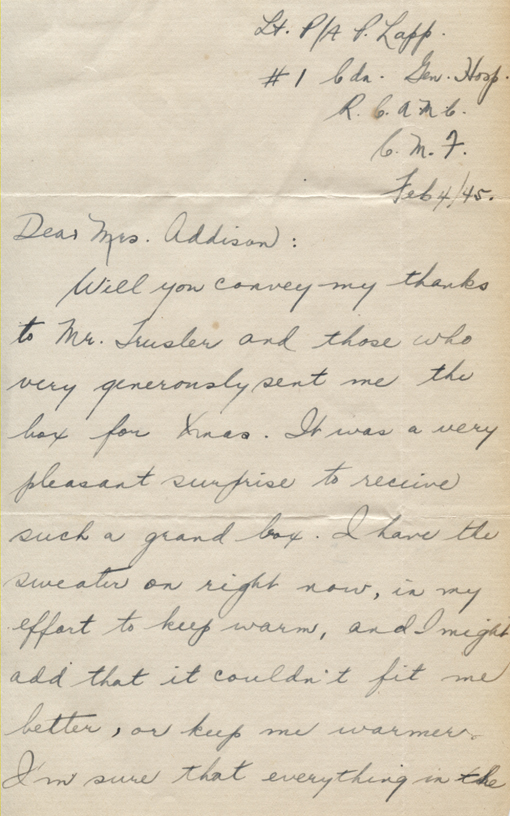 Lt. P/A P. Lapp.
#1 Cdn. Gen. Hosp.
R. C. A M C.
C. M. F.
Feb 4/45.
Dear Mrs. Addison:
Will you convey my thanks
to Mr. Trusler and those who
very generously sent me the
box for Xmas. It was a very
pleasant surprise to recieve
such a grand box. I have the
sweater on right now, in my
effort to keep warm, and I might
add that it couldn't fit me
better, or keep me warmer.
I'm sure that everything in the